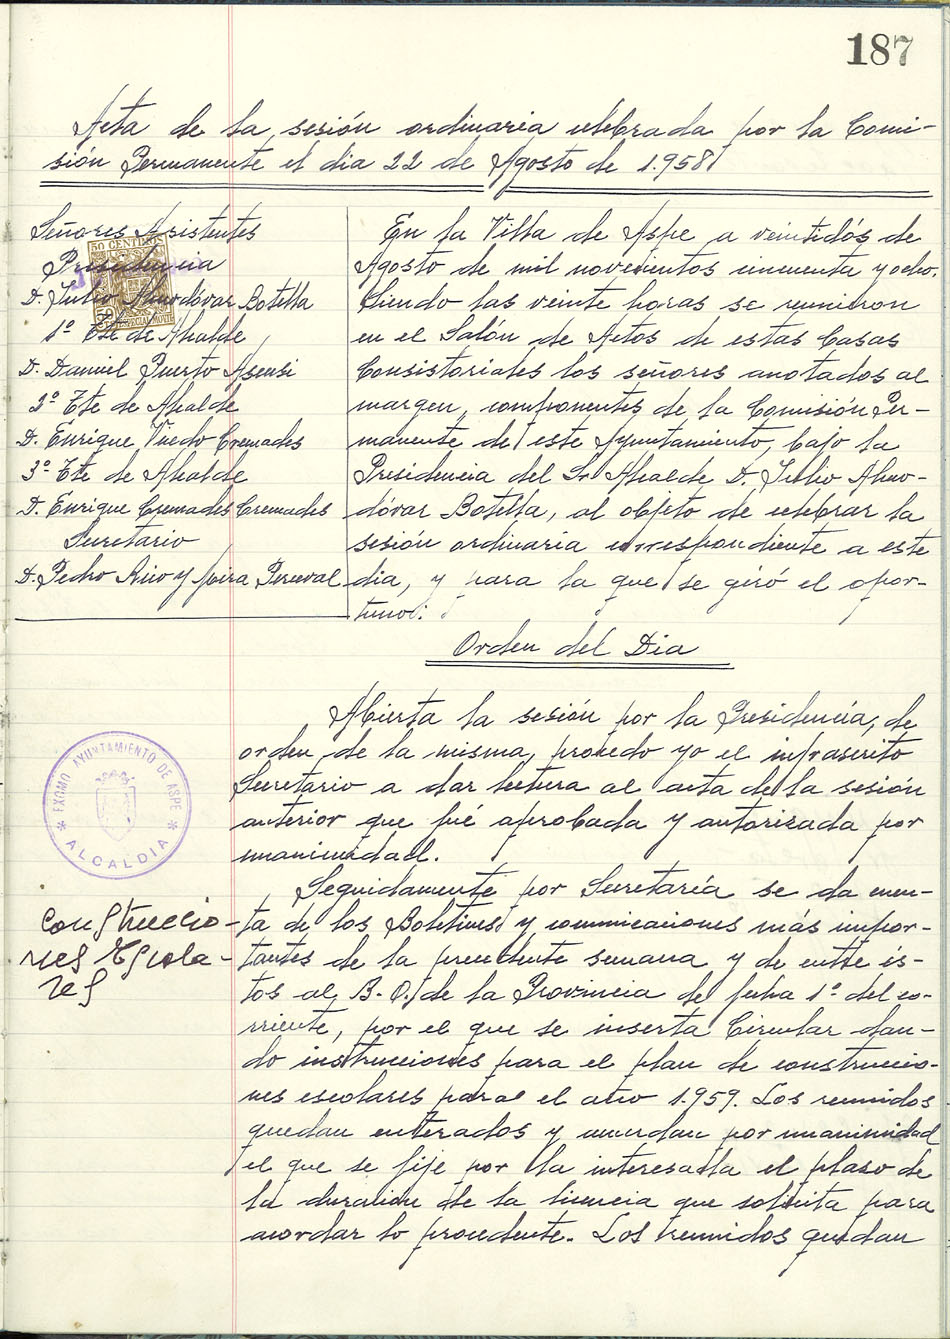 187
Acta de la sesión ordinaria celebrada por la Comi-
sión Permanente el dia 22 de Agosto de 1.958
Señores Asistentes
50 CENTIMOS
Presidencia
D. Julio Almodóvar Botella
ESPECIAL MOVIL
1º Tte de Alcalde
D. Daniel Puerto Asensi
2º Tte de Alcalde
D. Enrique Vuedo Cremades
3º Tte de Alcalde
D. Enrique Cremades Cremades
Secretario
D. Pedro Rico y Mira Perceval
En la Villa de Aspe a veintidós de
Agosto de mil novecientos cincuenta y ocho.
Siendo las veinte horas se reunieron
en el Salón de Actos de estas Casas
Consistoriales los señores anotados al
margen, componentes de la Comisión Per-
manente de este Ayuntamiento, bajo la
Presidencia del Sr Alcalde D. Julio Almo-
dóvar Botella, al objeto de celebrar la
sesión ordinaria correspondiente a este
dia, y para la que se giró el opor-
tuno:
Orden del Dia
Abierta la sesión por la Presidencia, de
orden de la misma, procedo yo el infrascrito
Secretario a dar lectura al acta de la sesión
anterior que fué aprobada y autorizada por
unanimidad.
EXCMO AYUNTAMIENTO DE ASPE
* ALCALDIA *
Construccio-
nes Escola-
res
Seguidamente por Secretaría se da cuen-
ta de los Boletines y comunicaciones más impor-
tantes de la precedente semana y de entre és-
tos al B. O. de la Provincia de fecha 1º del co-
rriente, por el que se inserta Circular dan-
do instrucciones para el plan de construccio-
nes escolares para el año 1.959. Los reunidos
quedan enterados y acuerdan por unanimidad
el que se fije por la interesada el plaso de
la duración de la licencia que solicita para
acordar lo procedente. Los reunidos quedan